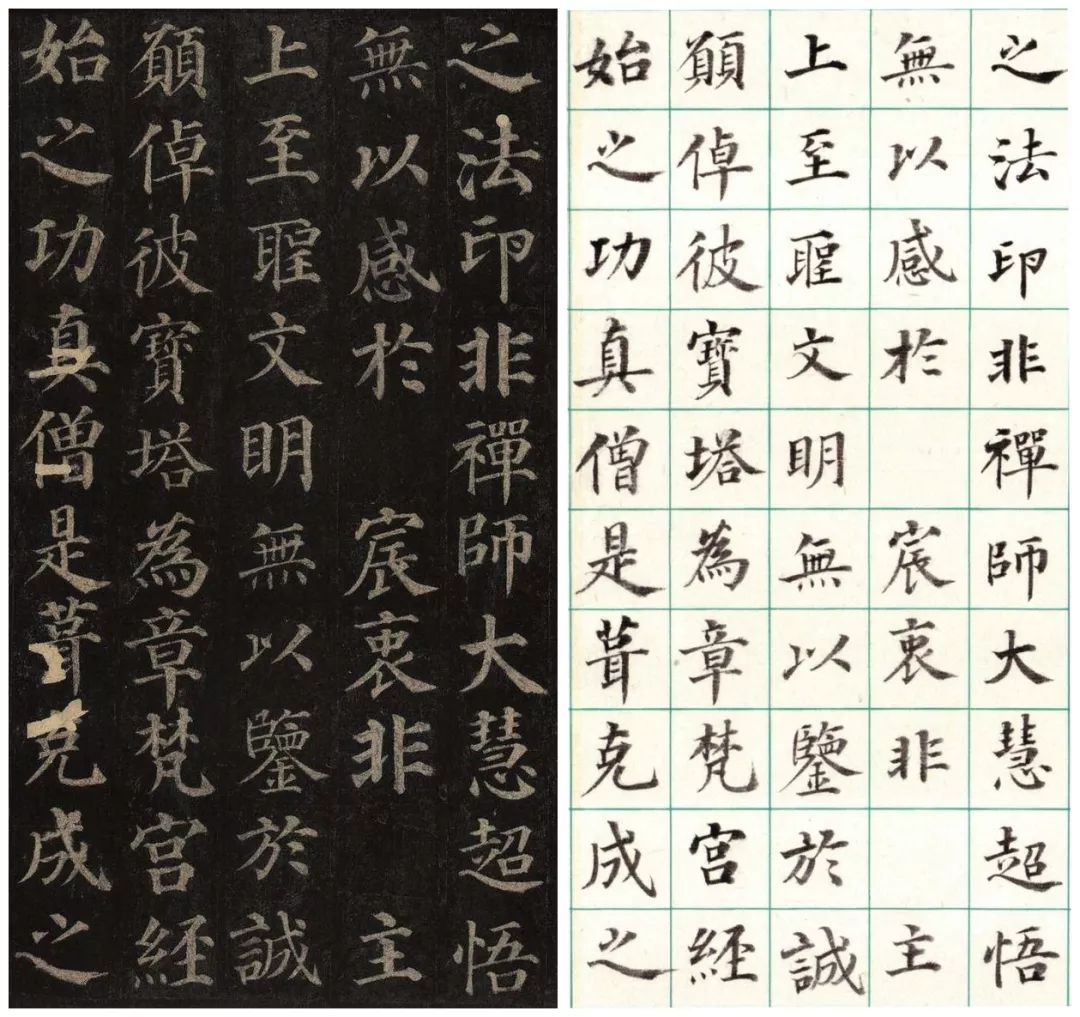 之法印非禪師大慧超悟
無以感於 宸衷非 主
上至聖文明無以鑒於誠
願倬彼寶塔為章梵宫經
始之功真僧是葺克成之
之法印非禪師大慧超悟
無以感於 宸衷非 主
上至聖文明無以鑒於誠
願倬彼寶塔為章梵宫經
始之功真僧是葺克成之